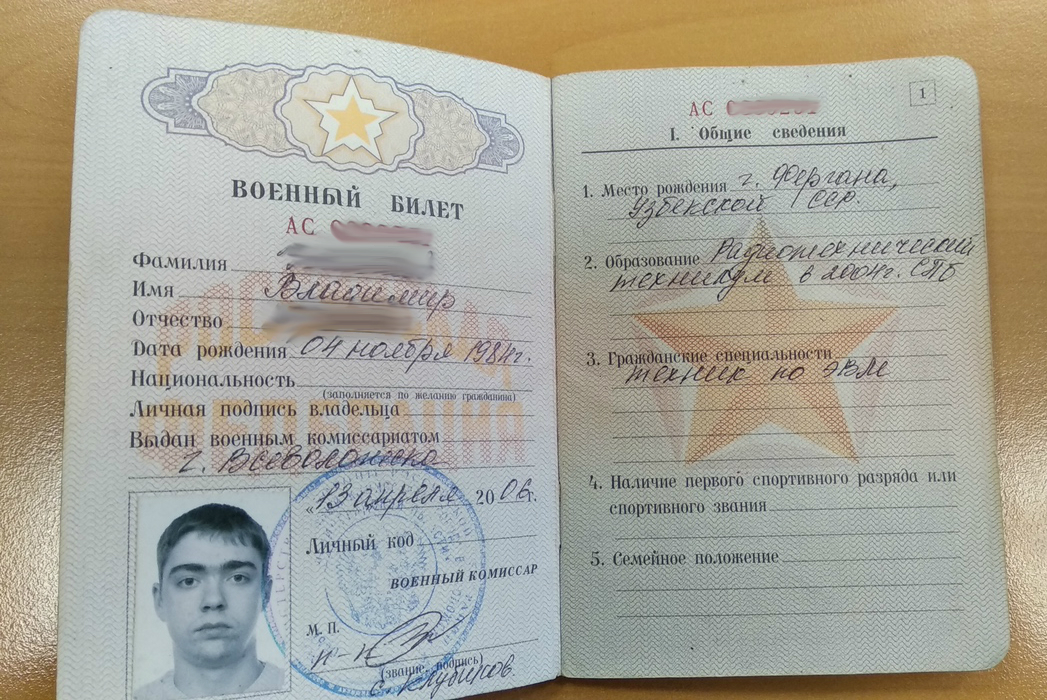 ВОЕННЫЙ БИЛЕТ
АС
Фамилия
Имя Владимир
Отчество
Дата рождения 04 ноября 1984г.
Национальность
(заполняется по желанию гражданина)
Личная подпись владельца
Выдан военным комиссариатом
г. Всеволожска
„13 апреля 2006г.
Личный код
ВОЕННЫЙ КОМИССАР
М. П.
п-п
(звание, подпись)
1
АС
I. Общие сведения
1. Место рождения г. Фергана,
Узбекской ССР.
2. Образование Радиотехнический
техникум в 2004г. СПб
3. Гражданские специальности
техник по ЭВМ
4. Наличие первого спортивного разряда или
спортивного звания
5. Семейное положение